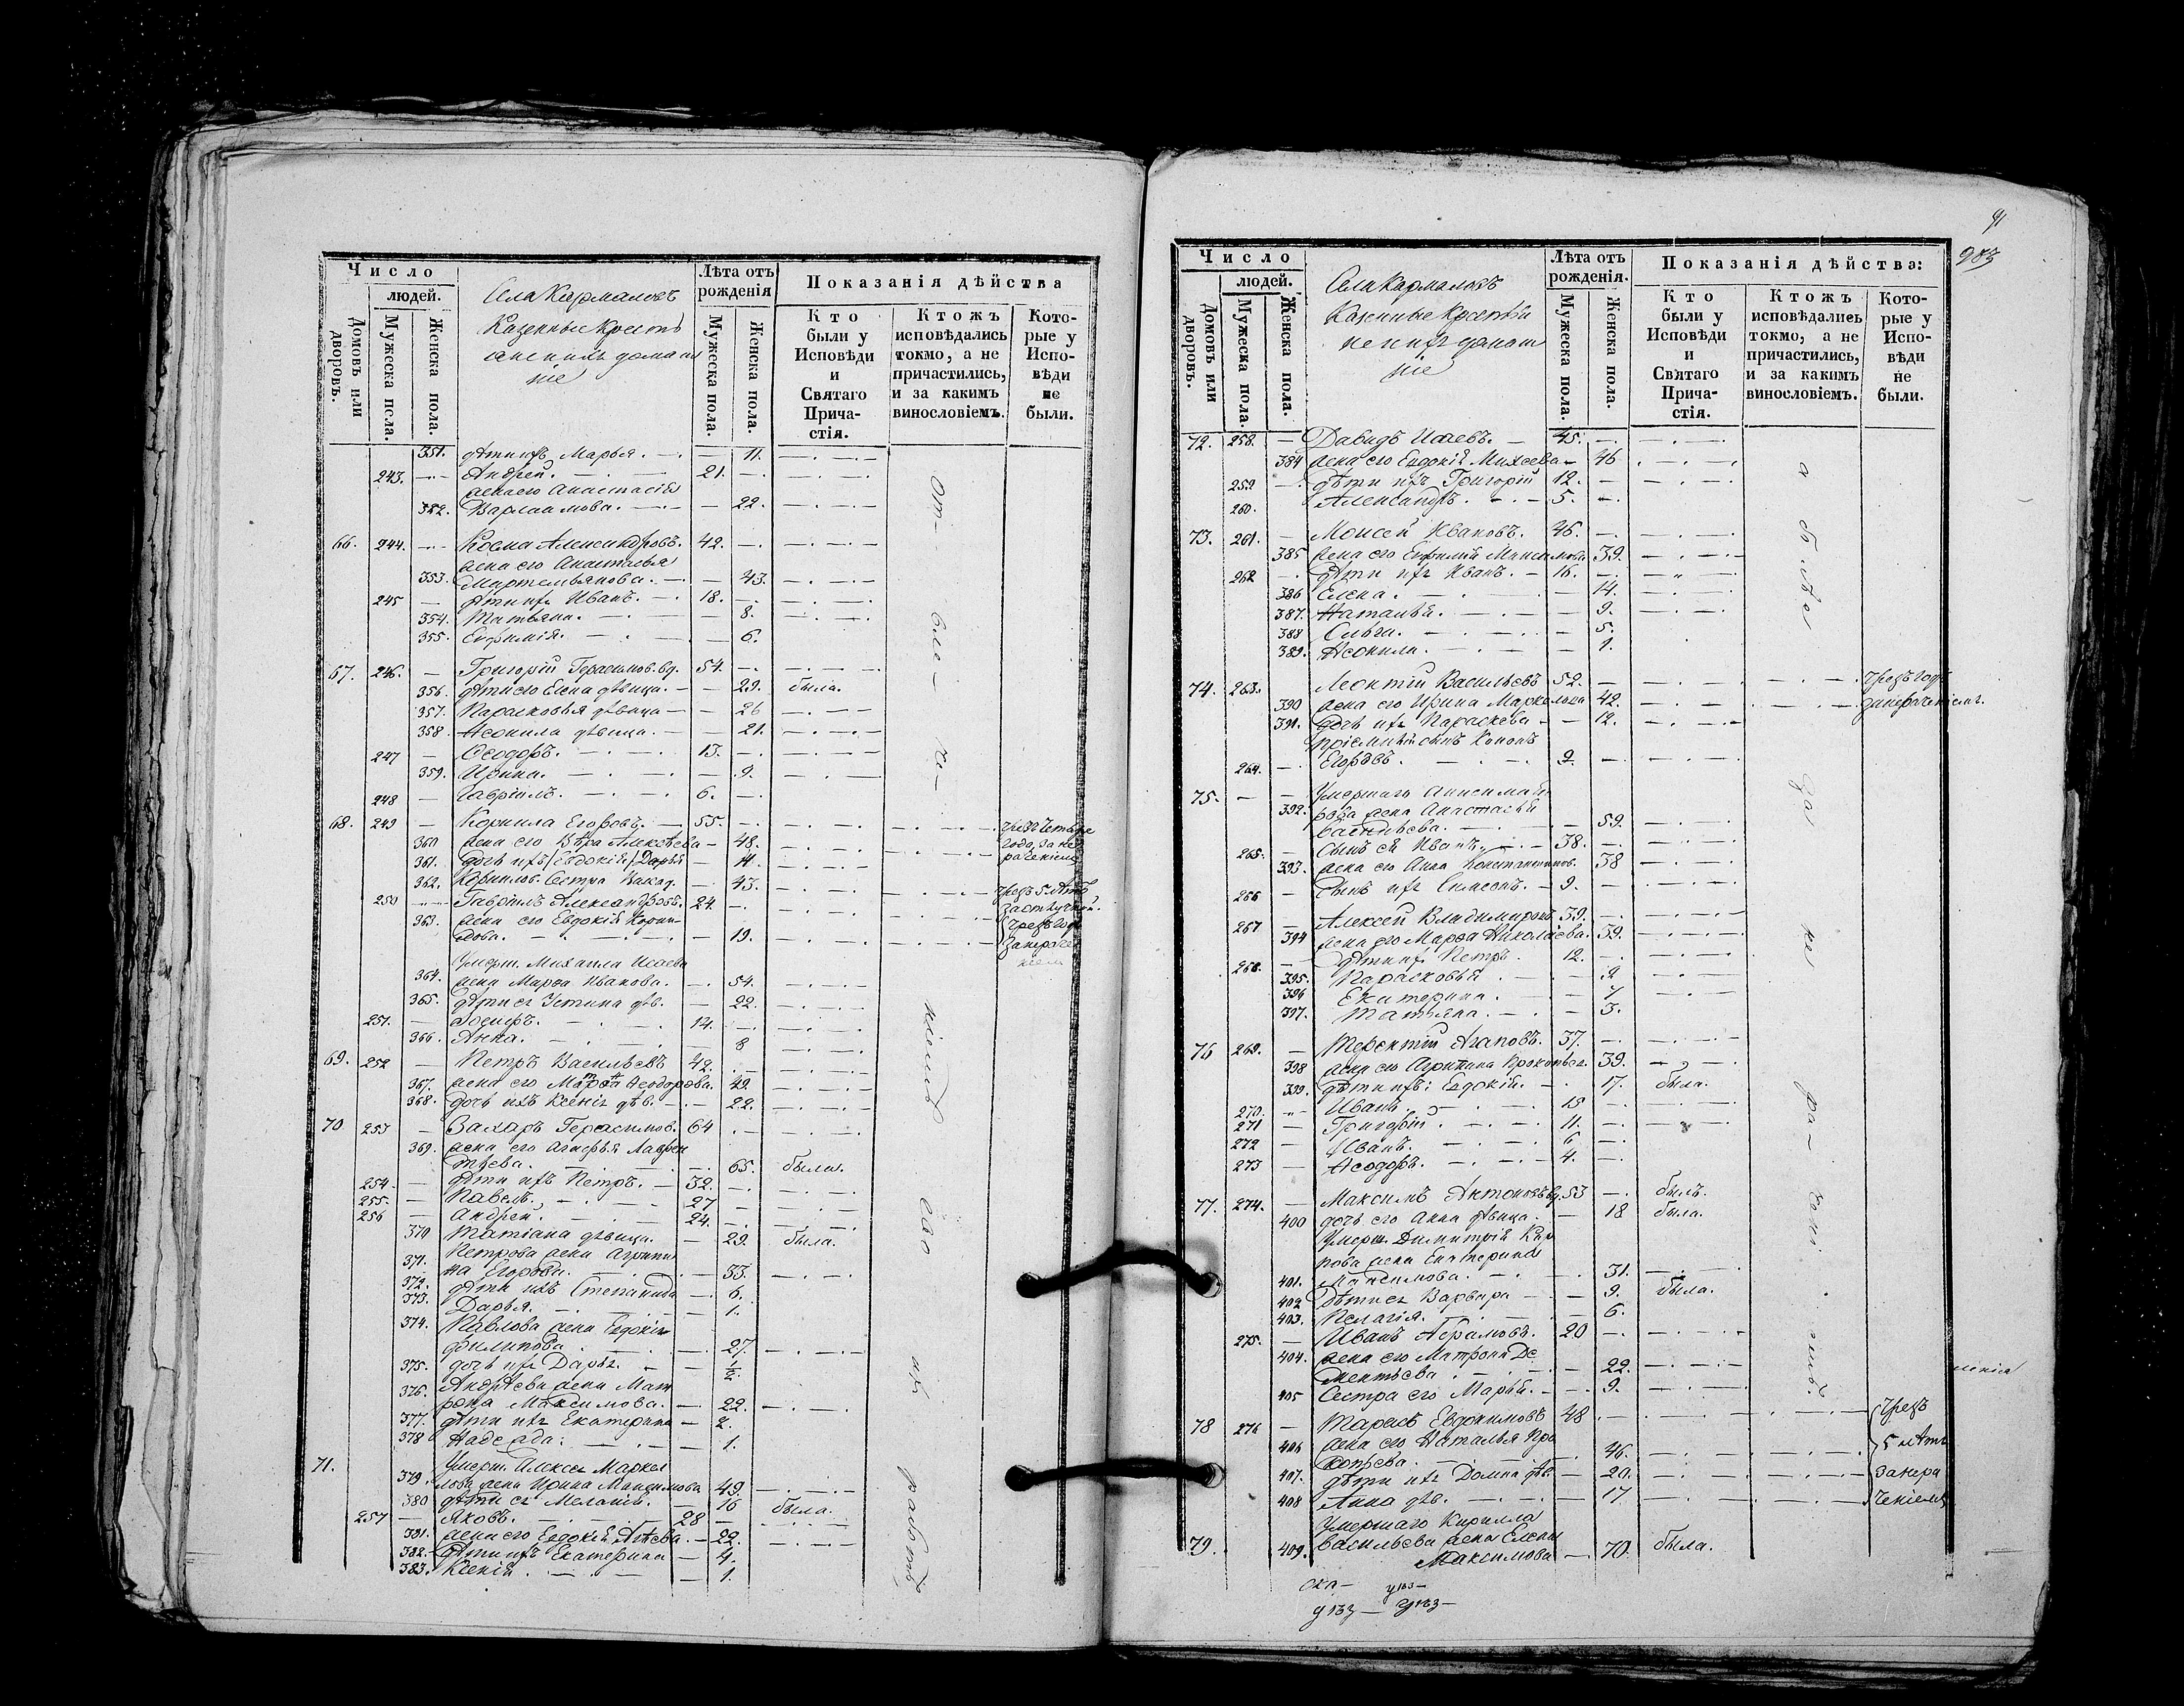 Число
людей.
Домовъ или дворовъ.
Мужеска пола.
Женска пола.
Села Кармаловъ
Казенные Крестъ
янскихъ домаш
ніе
Лѣта отъ рожденія
Мужеска пола.
Женска пола.
Показанія дѣйства
Кто были у Исповѣди и Святаго Причастія.
Ктожъ исповѣдались токмо, а не причастились, и за какимъ винословіемъ.
Которые у Исповѣди не были.
351. дѣти ихъ Марья. — 11.
243. Андрей. — 21.
жена его Анастасія
352. Варлаамова. — 22.
66. 244. Косма Александровъ. 42.
жена его Анастасія
353. Мартемьянова. — 43.
245 дѣти ихъ Иванъ. — 18.
354. Татьяна. — 8.
355. Евфимія. — 6.
67. 246. Григорій Герасимов. вд. 54.
356. дѣти его Елена дѣвица. — 29. была.
357. Парасковья дѣвица — 26
358. Неонила дѣвица. — 21.
247 Ѳеодоръ. — 13.
359. Ирина. — 9.
248 Гавріилъ. — 6.
68. 249 Корнила Егоровъ. — 55. чрезъ четыре
360 жена его Вѣра Алексѣева — 48. года, за не
361. дочь ихъ (Евдокія) Дарья — 14. раченіемъ
362. Корнилов. Сестра — 43.
250 Гавріилъ Александровъ. 24. чрезъ 5 лѣтъ
363. жена его Евдокія Корни- чрезъ годъ
лова. — 19. занераче
ніем
Умерш. Михаила Исаева
364. жена Марѳа Иванова. — 54.
365. дѣти ея Устина дѣв. — 22.
251. — 14.
366. Анна. — 8
69. 252 Петръ Васильевъ 42.
367. жена его Марѳа Ѳеодорова. 49.
368. дочь ихъ Ксенія дѣв. — 22.
70 253 Захаръ Герасимов. 64
369. жена его Агафья Лаврен
тьева. — 65. была.
254 дѣти ихъ Петръ. — 32.
255. Павелъ. — 27
256 Андрей. — 24.
370 Татіана дѣвица. — 29. была.
371. Петрова жена Агрипи
на Егорова. — 33.
372. дѣти ихъ Степанида — 6.
373. Дарья. — 1.
374. Павлова жена Евдокія
Филипова — 27.
375. дочь ихъ Дарья. — ½
376. Андрѣева жена Мат
рона Максимова. — 22.
377. дѣти ихъ Екатерина — 2.
378 Надежда: — 1.
71. Умерш. Алексѣя Маркел
379. лова жена Ирина Максимова 49.
380 дѣти ея Меланія. — 16 была.
257 Яковъ. — 28
381. жена его Евдокія — 22.
382. дѣти ихъ Екатерина — 4.
383. Ксенія. — 1.
91
983
Число
людей.
Домовъ или дворовъ.
Мужеска пола.
Женска пола.
Села Кармаловъ
Казенные Крестья
нскихъ домаш
ніе
Лѣта отъ рожденія.
Мужеска пола.
Женска пола.
Показанія дѣйства:
Кто были у Исповѣди и Святаго Причастія.
Ктожъ исповѣдались токмо, а не причастились, и за какимъ винословіемъ.
Которые у Исповѣди не были.
72. 258. Давидъ Исаевъ. — 45.
384 жена его Евдокія Михеева — 46
259 дѣти ихъ Григорій 12.
260. Александръ. — 5.
73. 261. Моисей Ивановъ. 46.
385 жена его Евфимія Максимова 39.
262 дѣти ихъ Иванъ. — 16.
386 Елена. — 14.
387. Наталья. — 9.
388 Ольга. — 5.
389. Неонила. — 1.
74. 263. Леонтій Васильевъ 52. чрезъ годъ
390 жена его Ирина Маркелова 42. занераченіемъ.
391. дочь ихъ Параскева — 12.
пріемный сынъ Кононъ
264. Егоровъ. — 9.
75. Умершаго
392. жена Анастасія
Васильева. — 59.
265. Сынъ ея Иванъ. — 38.
393. жена его Анна Константинов. 38
266 сынъ ихъ Симеонъ. — 9.
267 Алексей Владимировъ 39.
394 жена его Марѳа Николаева. 39.
268. дѣти ихъ Петръ. 12.
395. Парасковья — 9
396 Екатерина. — 7
397. Татьяна. — 3.
76 269. Терентій Агаповъ. 37.
398 жена его Агрипина Прокопьев. 39.
399. дѣти ихъ: Евдокія. — 17. была.
270. Иванъ. — 15
271 Григорій. — 11.
272 Иванъ. — 6
273 Ѳеодоръ. — 4.
77. 274. Максимъ Антоновъ вд. 53 былъ.
400 дочь его Анна дѣвица. — 18 была.
Умерш. Димитрія Кар
пова жена Екатерина
401. Максимова. — 31.
402 дѣти ея Варвара — 9. была.
403. Пелагія. — 6.
275. Иванъ Абрамовъ. 20
404. жена его Матрона Де
ментьева — 22.
405 Сестра его Марья. — 9.
78 276 Тарасъ Евдокимовъ 48 чрезъ
406 жена его Наталья Про 5 лѣтъ
копьева. — 46.
407. дѣти ихъ Домна дѣв. — 20. занера
408 Анна дѣв. — 17 ченіемъ
Умершаго Кирилла
79. 409. Васильева жена Елена
Максимова — 70. была.